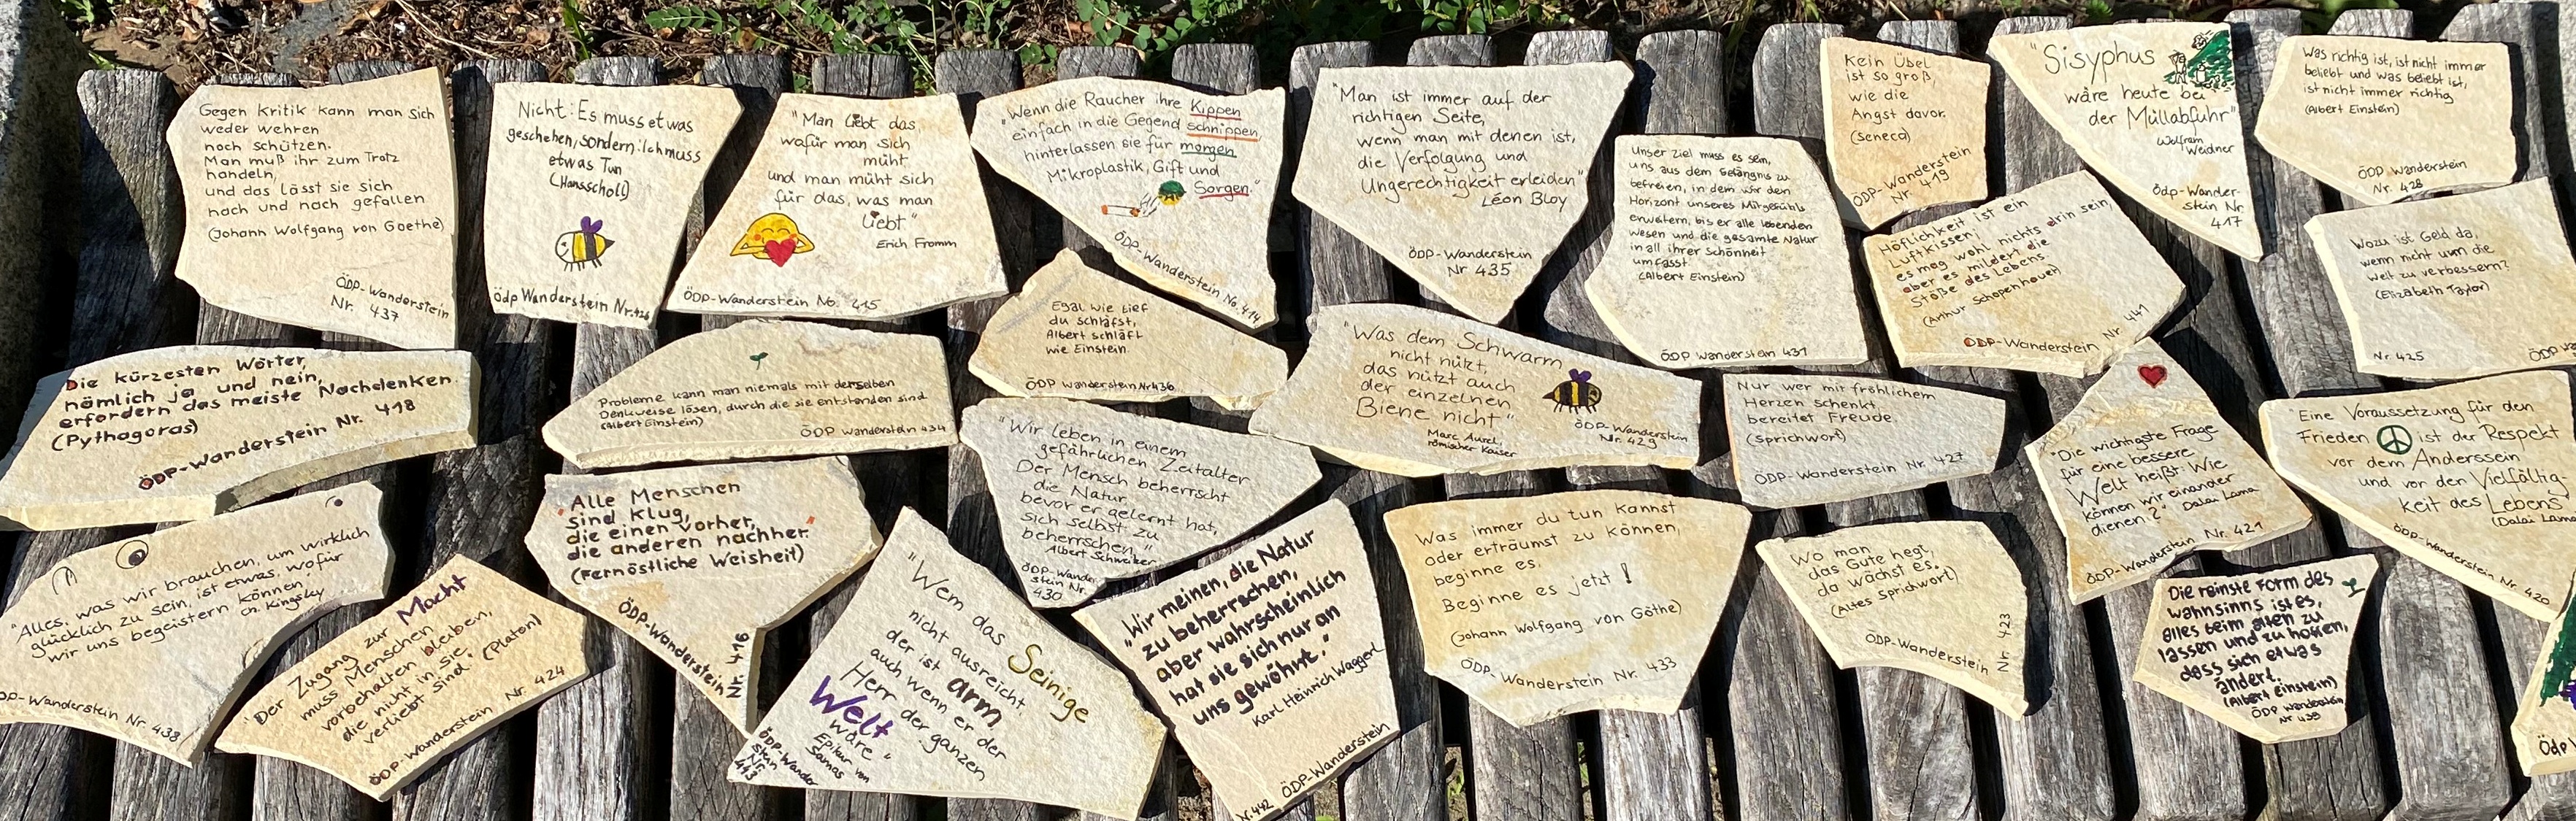 Gegen Kritik kann man sich
weder wehren
noch schützen.
Man muß ihr zum Trotz
handeln,
und das lässt sie sich
nach und nach gefallen
(Johann Wolfgang von Goethe)
ÖDP-Wanderstein
Nr. 437
Nicht: Es muss etwas
geschehen, sondern: Ich muss
etwas Tun
(Hansscholl)
Ödp Wanderstein Nr.
"Man liebt das,
wofür man sich
müht
und man müht sich
für das, was man
liebt"
Erich Fromm
ÖDP-Wanderstein No. 415
"Wenn die Raucher ihre Kippen
einfach in die Gegend schnippen,
hinterlassen sie für morgen
Mikroplastik, Gift und
Sorgen."
ÖDP-Wanderstein No. 414
"Man ist immer auf der
richtigen Seite,
wenn man mit denen ist,
die Verfolgung und
Ungerechtigkeit erleiden"
Léon Bloy
ÖDP-Wanderstein
Nr 435
Unser Ziel muss es sein,
uns aus dem Gefängnis zu
befreien, in dem wir den
Horizont unseres Mitgefühls
erweitern, bis er alle lebenden
Wesen und die gesamte Natur
in all ihrer Schönheit
umfasst
(Albert Einstein)
ÖDP Wanderstein 431
Kein Übel
ist so groß,
wie die
Angst davor.
(Seneca)
ÖDP-Wanderstein
Nr. 419
"Sisyphus
wäre heute bei
der Müllabfuhr"
Wolfram
Weidner
Ödp-Wander-
stein Nr
417
Was richtig ist, ist nicht immer
beliebt und was beliebt ist,
ist nicht immer richtig
(Albert Einstein)
ÖDP Wanderstein
Nr. 428
Höflichkeit ist ein
Luftkissen;
es mag wohl nichts drin sein,
aber es mildert die
Stöße des Lebens
(Arthur Schopenhauer)
ÖDP-Wanderstein Nr 441
Wozu ist Geld da,
wenn nicht um die
Welt zu verbessern?
(Elizabeth Taylor)
Nr. 425
Egal wie tief
du schläfst,
Albert schläft
wie Einstein.
ÖDP Wanderstein Nr 436
Die kürzesten Wörter,
nämlich ja und nein,
erfordern das meiste Nachdenken.
(Pythagoras)
ÖDP-Wanderstein Nr. 418
Probleme kann man niemals mit derselben
Denkweise lösen, durch die sie entstanden sind
(Albert Einstein)
ÖDP Wanderstein 434
"Was dem Schwarm
nicht nützt,
das nützt auch
der einzelnen
Biene nicht"
Marc Aurel,
römischer Kaiser
ÖDP-Wanderstein
Nr. 429
Nur wer mit fröhlichem
Herzen schenkt,
bereitet Freude
(Sprichwort)
ÖDP-Wanderstein Nr. 427
"Die wichtigste Frage
für eine bessere
Welt heißt: Wie
können wir einander
dienen?" Dalai Lama
ÖDP-Wanderstein Nr. 421
Eine Voraussetzung für den
Frieden ist der Respekt
vor dem Anderssein
und vor der Vielfältig-
keit des Lebens
(Dalai Lama
ÖDP-Wanderstein Nr. 420
"Wir leben in einem
gefährlichen Zeitalter
Der Mensch beherrscht
die Natur
bevor er gelernt hat,
sich selbst zu
beherrschen."
Albert Schweitzer
ÖDP-Wander
stein Nr.
430
"Alles, was wir brauchen, um wirklich
glücklich zu sein, ist etwas, wofür
wir uns begeistern können."
Ch. Kingsley
DP-Wanderstein Nr 438
"Der Zugang zur Macht
muss Menschen
vorbehalten bleiben,
die nicht in sie
verliebt sind." (Platon)
ÖDP-Wanderstein Nr. 424
"Alle Menschen
sind klug,
die einen vorher,
die anderen nachher."
(Fernöstliche Weisheit)
ÖDP-Wanderstein
Nr. 416
"Wem das Seinige
nicht ausreicht,
der ist arm
auch wenn er der
Herr der ganzen
Welt
wäre"
Epikur von
Samos
ÖDP-Wander
stein
Nr.
413
"Wir meinen, die Natur
zu beherrschen,
aber wahrscheinlich
hat sie sich nur an
uns gewöhnt."
Karl Heinrich Waggerl
ÖDP-Wanderstein
Nr. 442
Was immer du tun kannst
oder erträumst zu können,
beginne es.
Beginne es jetzt!
(Johann Wolfgang von Göthe)
ÖDP-Wanderstein Nr. 433
Wo man
das Gute hegt,
da wächst es.
(Altes Sprichwort)
ÖDP-Wanderstein
Nr 423
Die reinste Form des
Wahnsinns ist es,
alles beim alten zu
lassen und zu hoffen,
dass sich etwas
ändert.
(Albert Einstein)
ÖDP Wanderstein
Nr 439
Ödp